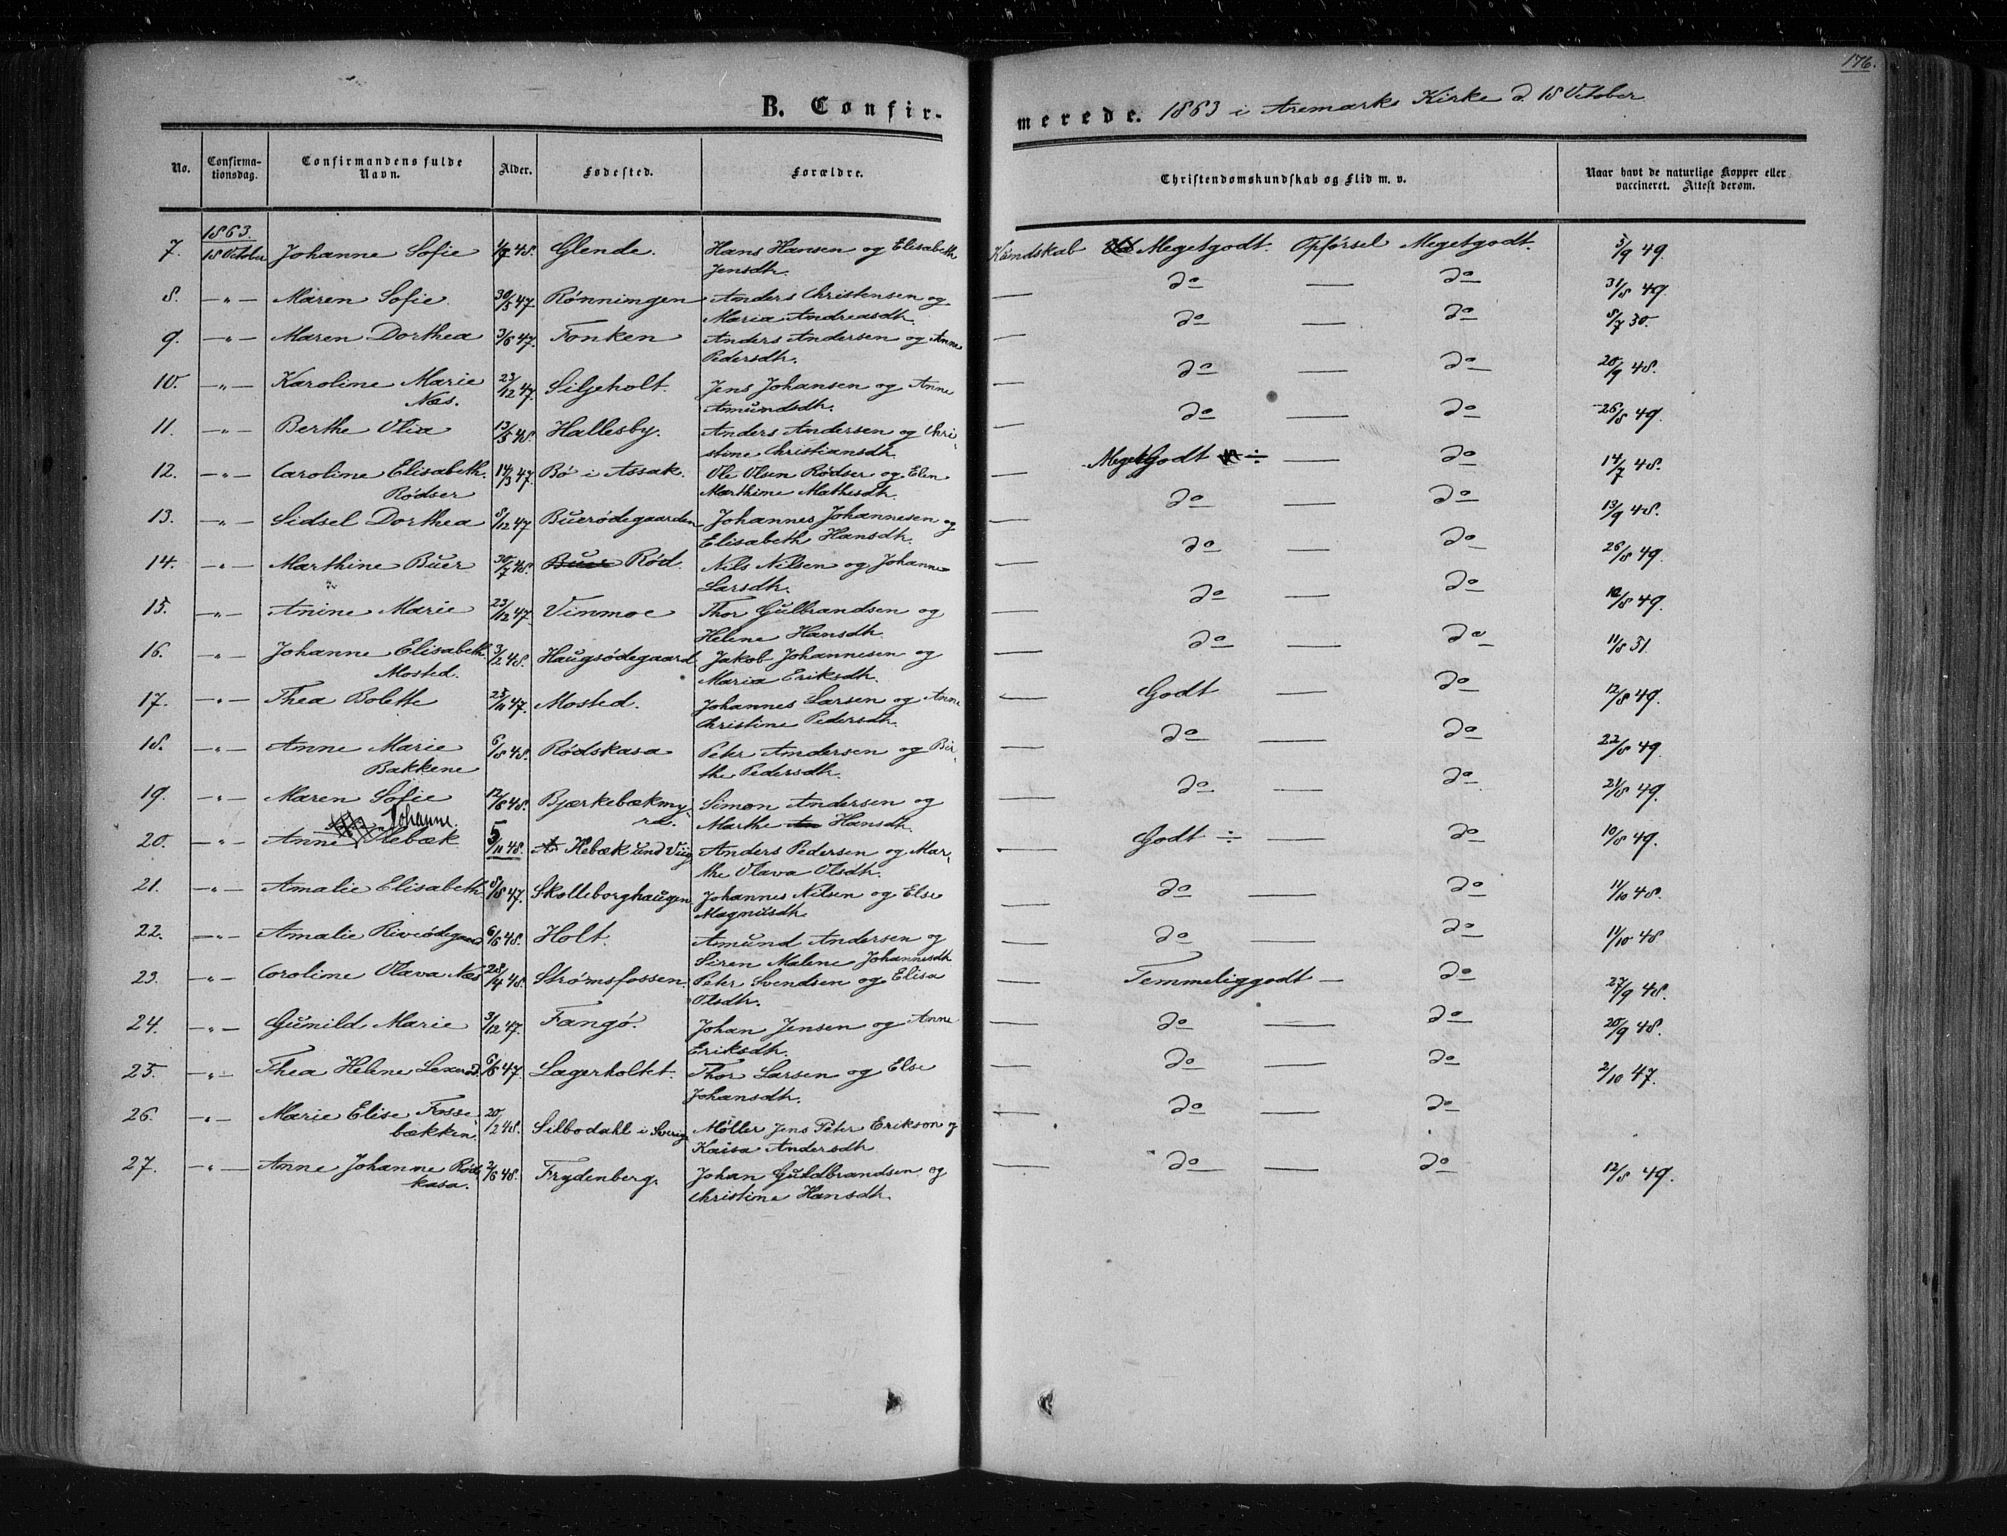 176.
B. Confirmerede. 1863 i Aremarks Kirke d. 18 October
No. Confirmationsdag. Confirmandens fulde Navn. Alder. Fødested. Forældre. Christendomskundskab og Flid m. v. Naar havt de naturlige Kopper eller vaccineret. Attest derom.
1863.
7. 18 October Johanne Sofie 48. Glende. Hans Hansen og Elisabeth Jensdh. Kundskab Megetgodt. Opførsel Megetgodt. 5/9 49.
8. —"— Maren Sofie. 30/5 47. Rønningen Anders Christensen og Maria Andreasdh. — do — do 31/8 49.
9. —"— Maren Dorthea 3/6 47. Fonken Anders Andersen og Anne Pedersdh. — do — do 8/7 30.
10. —"— Karoline Marie Næs. 23/12 47. Siljeholt. Jens Johansen og Anne Amundsdh. — do — do 20/9 48.
11. —"— Berthe Olia 13/5 48. Hallesby. Anders Andersen og Christine Christiansdh. — do — do 26/8 49.
12. —"— Caroline Elisabeth Rødser 14/3 47. Bø i Assak. Ole Olsen Rødser og Elen Marthine Mathisdh. — MegetGodt ÷ — do 14/7 48.
13. —"— Sidsel Dorthea 8/12 47. Buerødegaarden Johannes Johannesen og Elisabeth Hansdh. — do — do 13/9 48.
14. —"— Marthine Buer 30/7 48. Buer Rød. Nils Nilsen og Johanne Larsdh. do — do 26/8 49.
15. —"— Anine Marie 23/12 47. Vimmoe Thor Gulbrandsen og Helene Hansdh. — do — do 12/8 49.
16. —"— Johanne Elisabeth Mosted. 3/2 48. Haugsødegaard Jakob Johannesen og Maria Eriksdh. — do — do 11/8 31.
17. —"— Thea Bolette 23/11 47. Mosted. Johannes Larsen og Anne Christine Pedersdh. — Godt — do 12/8 49.
18. —"— Anne Marie Bakkene 6/8 48. Rødskasa Peter Andersen og Berthe Pedersdh. — do — do 22/8 49.
19. —"— Maren Sofie 12/8 48. Bjærkebækmyra. Simon Andersen og Marthe Hansdh. — do — do 21/8 49.
20. —"— Anne Johanne Hebæk 5/11 48. Hebæk und Viig Anders Pedersen og Marthe Olava Olsdh. — Godt ÷ — do 10/8 49.
21. —"— Amalie Elisabeth 8/8 47. Skolleborghaugen Johannes Nilsen og Else Magnusdh. — do — do 11/10 48.
22. —"— Amalie Riviødegaard 6/6 48. Holt. Amund Andersen og Siren Malene Johannesdh — do — do 11/10 48
23. —"— Caroline Olava Næs 28/4 48 Strømsfossen. Peter Svendsen og Elisa Olsdh. — Temmeliggodt — do 27/9 48.
24. —"— Gunild Marie 3/12 47. Fangø. Johan Jensen og Anne Eriksdh. — do — do 20/9 48.
25. —"— Thea Helene 6/8 47. Lagerholtet. Thor Larsen og Else Johansdh. — do — do 2/10 47.
26. —"— Marie Elise Fossebækken 20/2 48. Silbodahl i Sverig Møller Jens Peter Erikson og Kaisa Andersdh — do — do
27. —"— Anne Johanne Rødskasa. 2/6 48. Frydenberg. Johan Guldbrandsen og Christine Hansdh. — do — do 12/8 49.